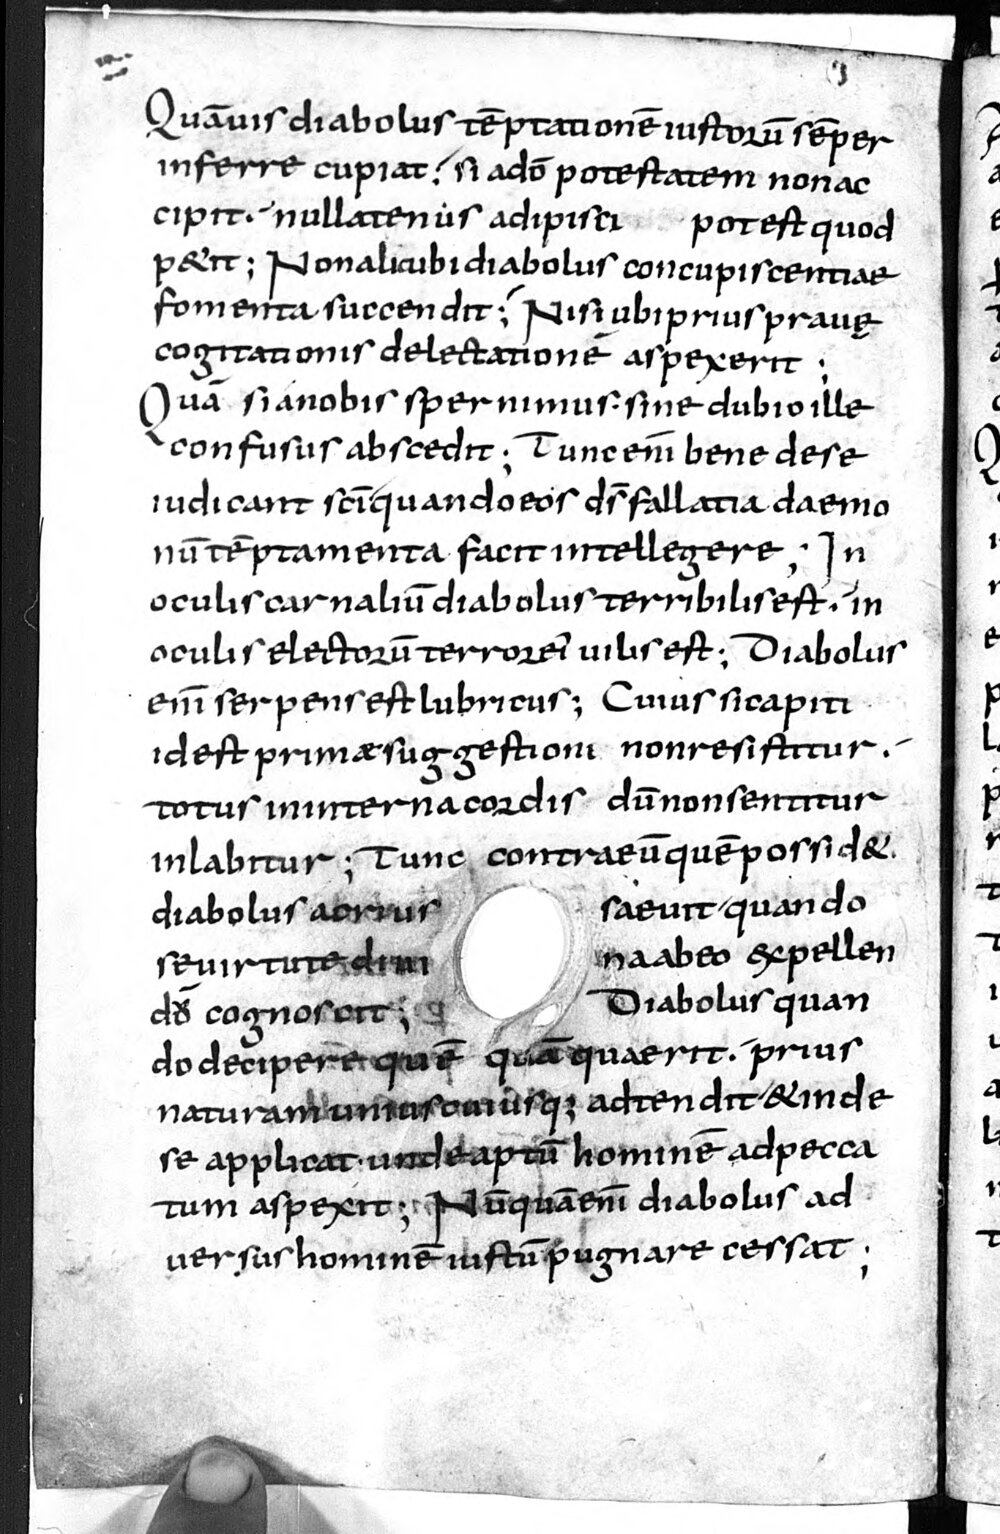 Quāuis diabolus tēptationē iustorū sēper
inferre cupiat; si ado potestatem non ac
cipit. nullatenus adipisci potest quod
p&it; Non alicubi diabolus concupiscentiae
fomenta succendit; Nisi ubi prius prauę
cogitationis delectationē aspexerit;
Quā si a nobis spernimus. sine dubio ille
confusus abscedit; Tunc enī bene de se
iudicant scī quando eos ds̄ fallatia daemo
nū tēptamenta facit intellegere; In
oculis carnaliū diabolus terribilis est. in
oculis electorū terror eī uilis est; Diabolus
enī serpens est lubricus; Cuius si capiti
id est primæ suggestioni non resistitur.
totus in interna cordis dū non sentitur
inlabitur; Tunc contra eū quē possid&
diabolus acrius saeuit quando
se uirtute diui na ab eo expellen
dū cognoscit; Diabolus quan
do decipere quē quā quaerit. prius
naturam unius cuiusq; adtendit & inde
se applicat. unde aptū hominē ad pecca
tum aspexit; Nūquā enī diabolus ad
uersus hominē iustū pugnare cessat;